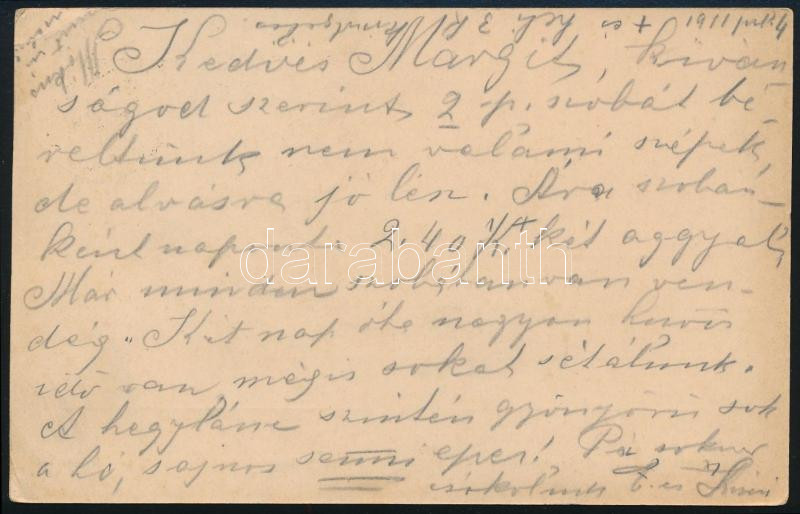 Kedves Margit, kiván-
ságod szerint 2 p. szobát bé-
reltünk nem valami szépek,
de alvásra jó lesz. Ára szobán-
ként naponta 2.40 két aggyal,
Már minden szobában van ven-
dég. Két nap óta nagyon huvös
idő van mégis sokat sétálunk.
A hegylánc szintén gyönyörü sok
a hó, sajnos semmi eper! Pá sokszor
csókolunk és
darabanth